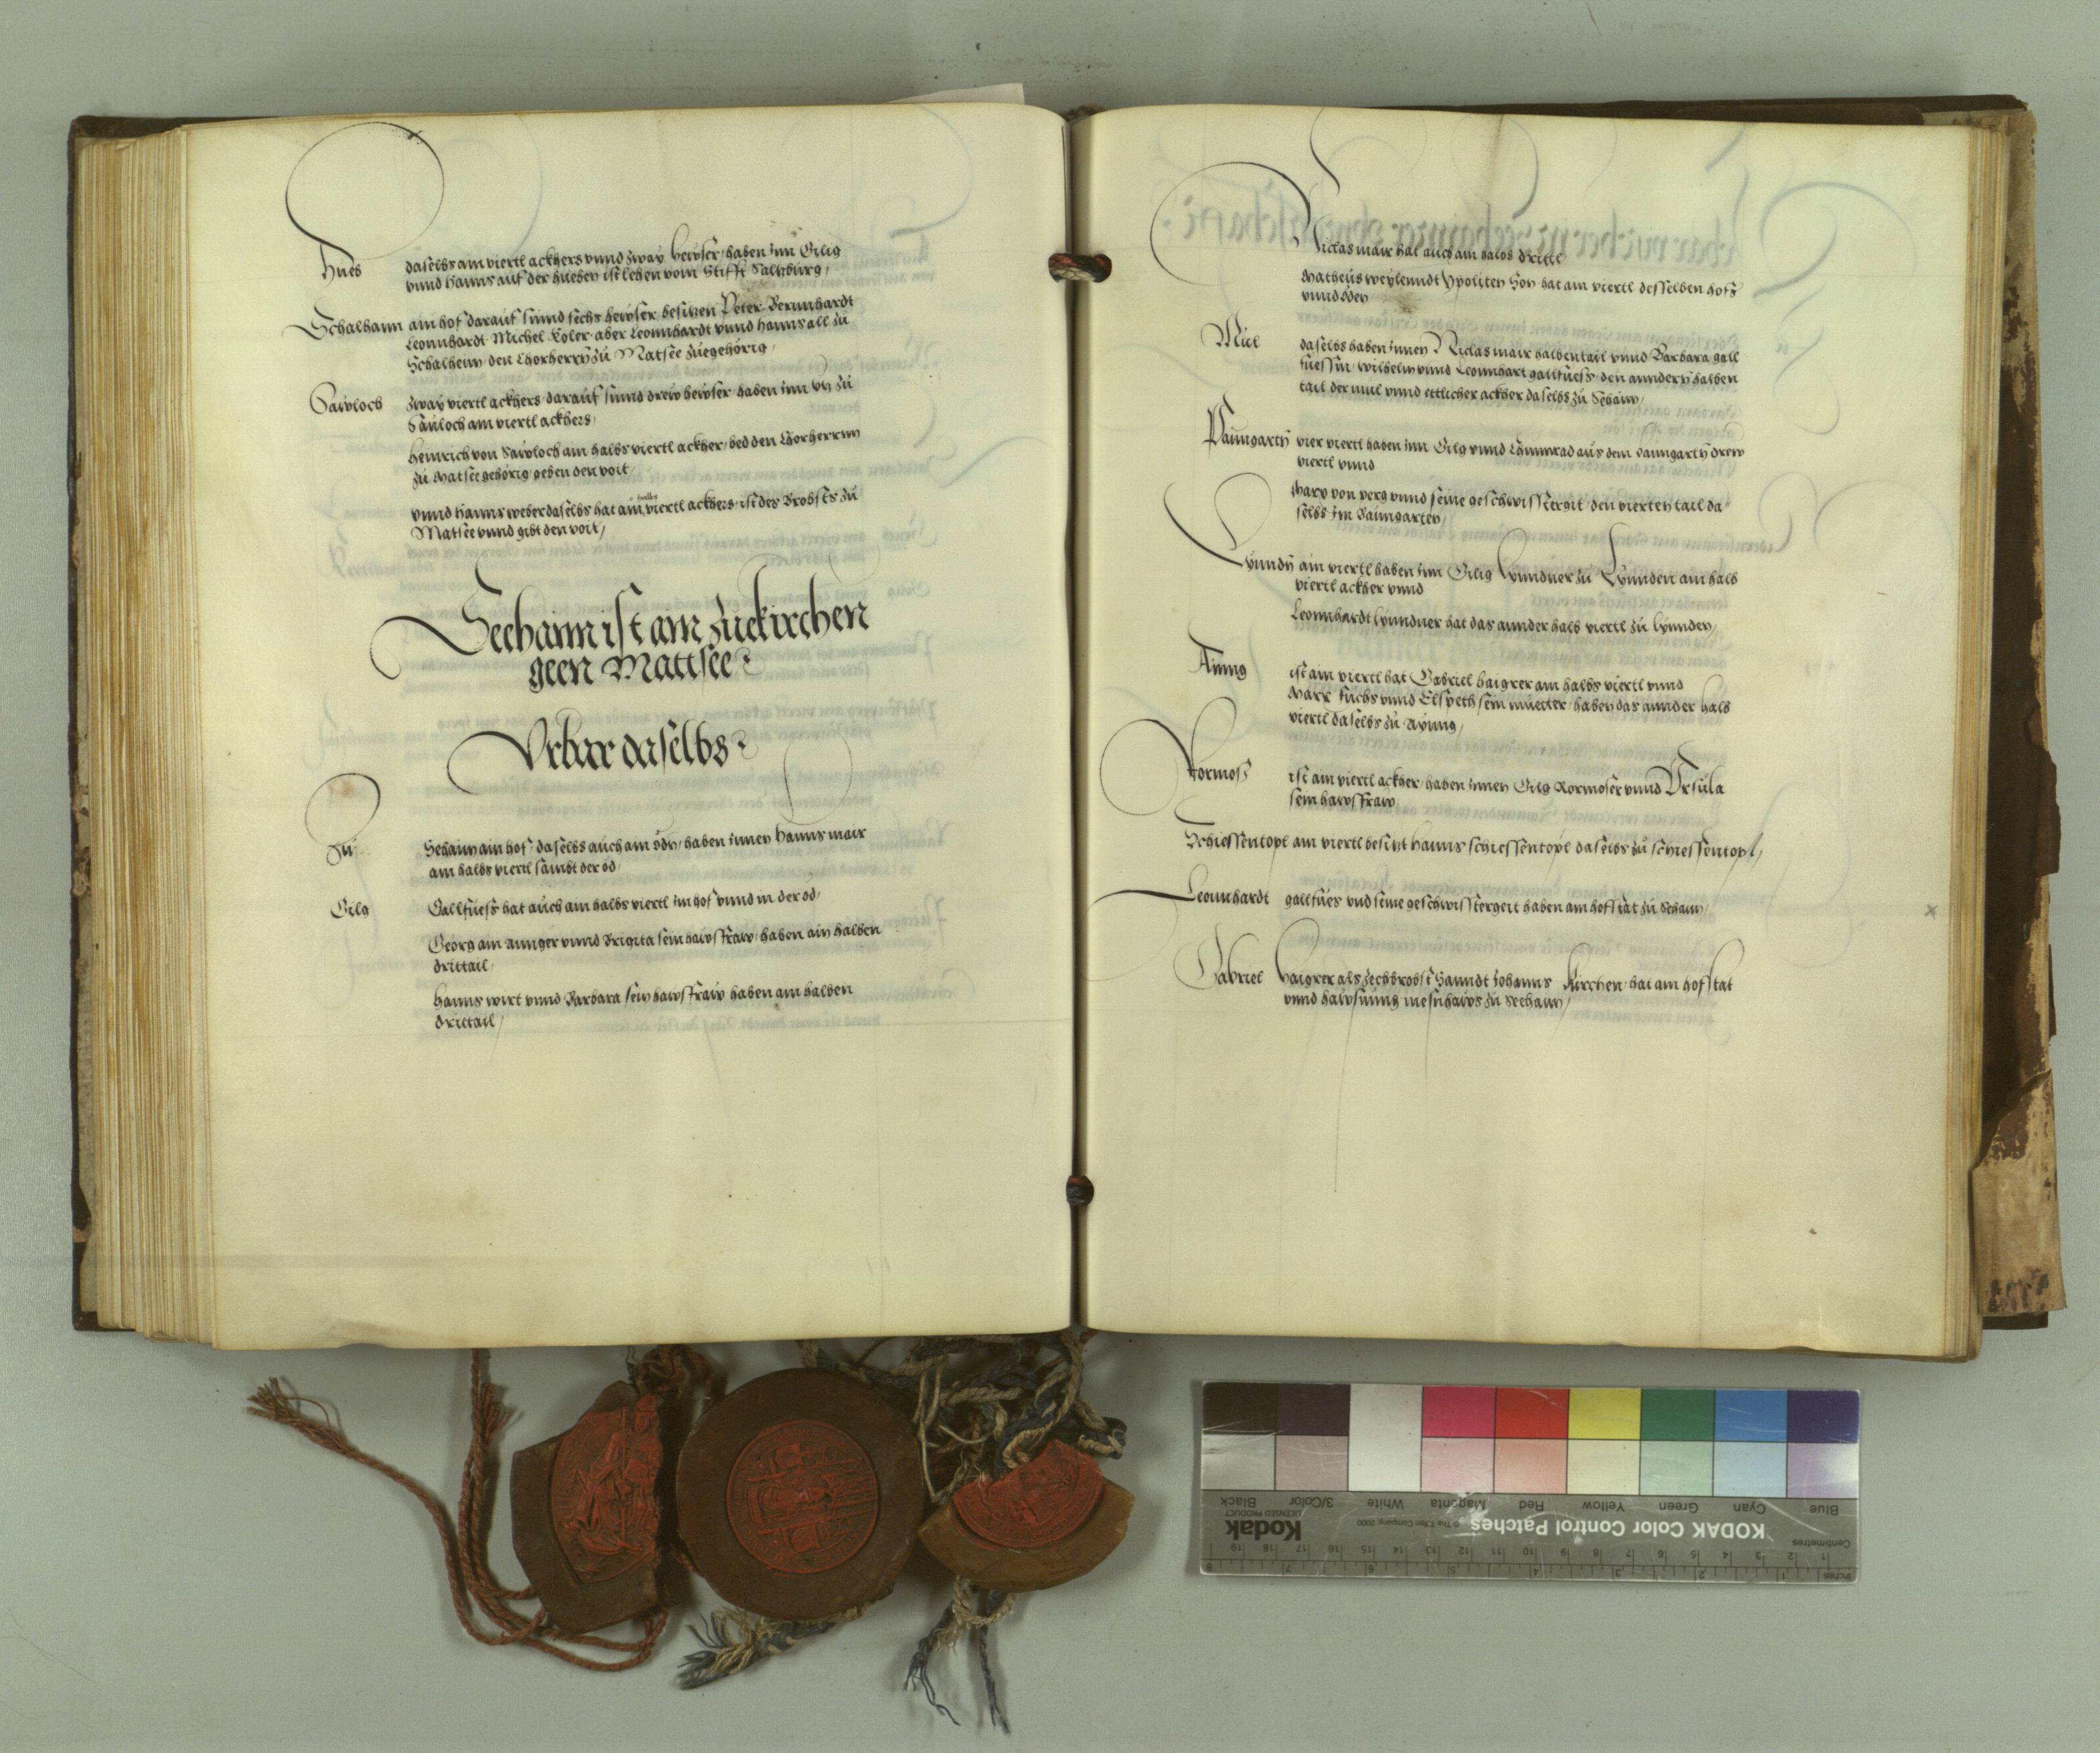 Hueb daselbs ain viertl ackhers vnnd zway hewser, haben jnn Gilig
vnnd Hanns auf der hueben ist lehen vom Stifft Saltzburg,
Schalhaim ain hof darauf sinnd sechs hewser besitzen Peter Bernnhardt
Leonnhardt Michel Koler aber Leonnhardt vnnd Hanns all zu
Schalheim den Chorherrn zu Matsee zuegehörig,
Sawloch zway viertl ackhers, darauf sinnd drew hewser, haben jnn vtz zu
Säuloch ain viertl ackhers,
Heinrich von Sawloch ain halbs viertl ackher, bed den Chorherrnn
zu Matsee gehörig geben den voit,
vnnd Hanns weber daselbs hat ain halbs viertl ackhers, ist des Brobsts zu
Matsee vnnd gibt den voit,
Seehaim ist ain zuekirchen
geen Mattsee
Vrbar daselbs
Zu Sehaim ain hof daselbs auch ain ödn, haben jnnen Hanns mair
ain halbs viertl sambt der öd,
Gilg Gallfuess hat auch ain halbs viertl jm hof vnnd in der öd,
Georg am annger vnnd Brigita sein hawsfraw, haben ain halben
drittail,
Hanns wirt vnnd Barbara sein hawsfraw haben ain halben
drittail,
Niclas mair hat auch ain halbs drittl
Matheus weylenndt Ypoliten Son hat ain viertl desselben hofs
vnnd öden
Mül daselbs haben jnnen Niclas mair halbentail vnnd Barbara gall
fuessin, wilhelm vnnd Leonnhart gallfuess, den anndern halben
tail der mul vnnd ettlicher ackher daselbs zu Sehaim,
Paumgartn vier viertl haben jnn Gilg vnnd Chunnrad aus dem paumgartn drew
viertl vnnd
Marx von perg vnnd seine geschwisstergit, den vierten tail da
selbs jm Baumgarten,
Lynndn ain viertl haben jnn Gilig Lynndner zu Lynnden ain halb
viertl ackher vnnd
Leonnhardt lynndner hat das annder halb viertl zu lynnden,
Ainng ist ain viertl hat Gabriel haigrer ain halbs viertl vnnd
Marx fuchs vnnd Elspeth sein muetter, haben das annder halb
viertl daselbs zu Ayinng,
Rormoss ist ain viertl ackher, haben jnnen Gilg Rormoser vnnd Ursula
sein hawsfraw
Schiessentopl ain viertl besitzt hanns schiessentopl daselbs zu schiessentopl,
Leonnhardt gallfues vnd seine geschwisstergeit haben ain hofstat zu Sehaim,
Gabriel haigrer als zechbrobst Sanndt Johanns kirchen, hat ain hofstat
vnnd hawsunng mesnhaws zu Seehaim,
Kodak
LICENSED PRODUCT
KODAK Color Control Patches
© The Tiffen Company, 2000
Blue Cyan Green Yellow Red Magenta White 3/Color Black
Centimetres
1 2 3 4 5 6 7 8 9 10 11 12 13 14 15 16 17 18 19
Inches
1 2 3 4 5 6 7 8